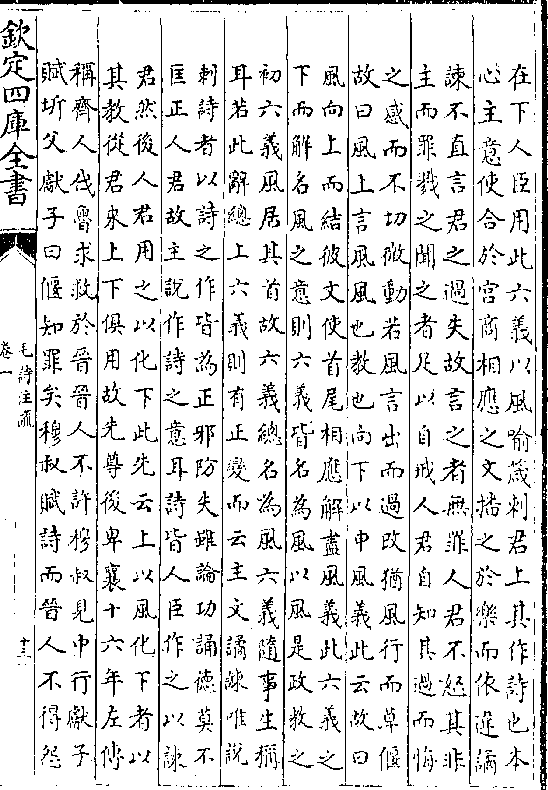 在下人臣用此六義以風喻箴刺君上其作詩也本
心主意使合於宮商相應之文播之於樂而依違譎
諫不直言君之過失故言之者無罪人君不怒其作
主而罪戮之聞之者足以自戒人君自知其過而悔
之感而不切微動若風言出而過改猶風行而草偃
故曰風上言風風也教也向下以申風義此云故曰
風向上而結彼文使首尾相應解盡風義此六義之
下而解名風之意則六義皆名為風以風是政教之
初六義風居其首故六義總名為風六義隨事生稱
耳若此辭總上六義則有正變而云主文譎諫唯說
刺詩者以詩之作皆為正邪防失雖論功誦德莫不
匡正人君故主說作詩之意耳詩皆人臣作之以諫
君然後人君用之以化下此先云上以風化下者以
其教從君來上下俱用故先尊後卑襄十六年左傳
稱齊人伐魯求救於晉晉人不許穆叔見中行獻子
賦圻父獻子曰偃知罪矣穆叔賦詩而晉人不得怨
欽定四庫全書
毛詩注疏
卷一
十三